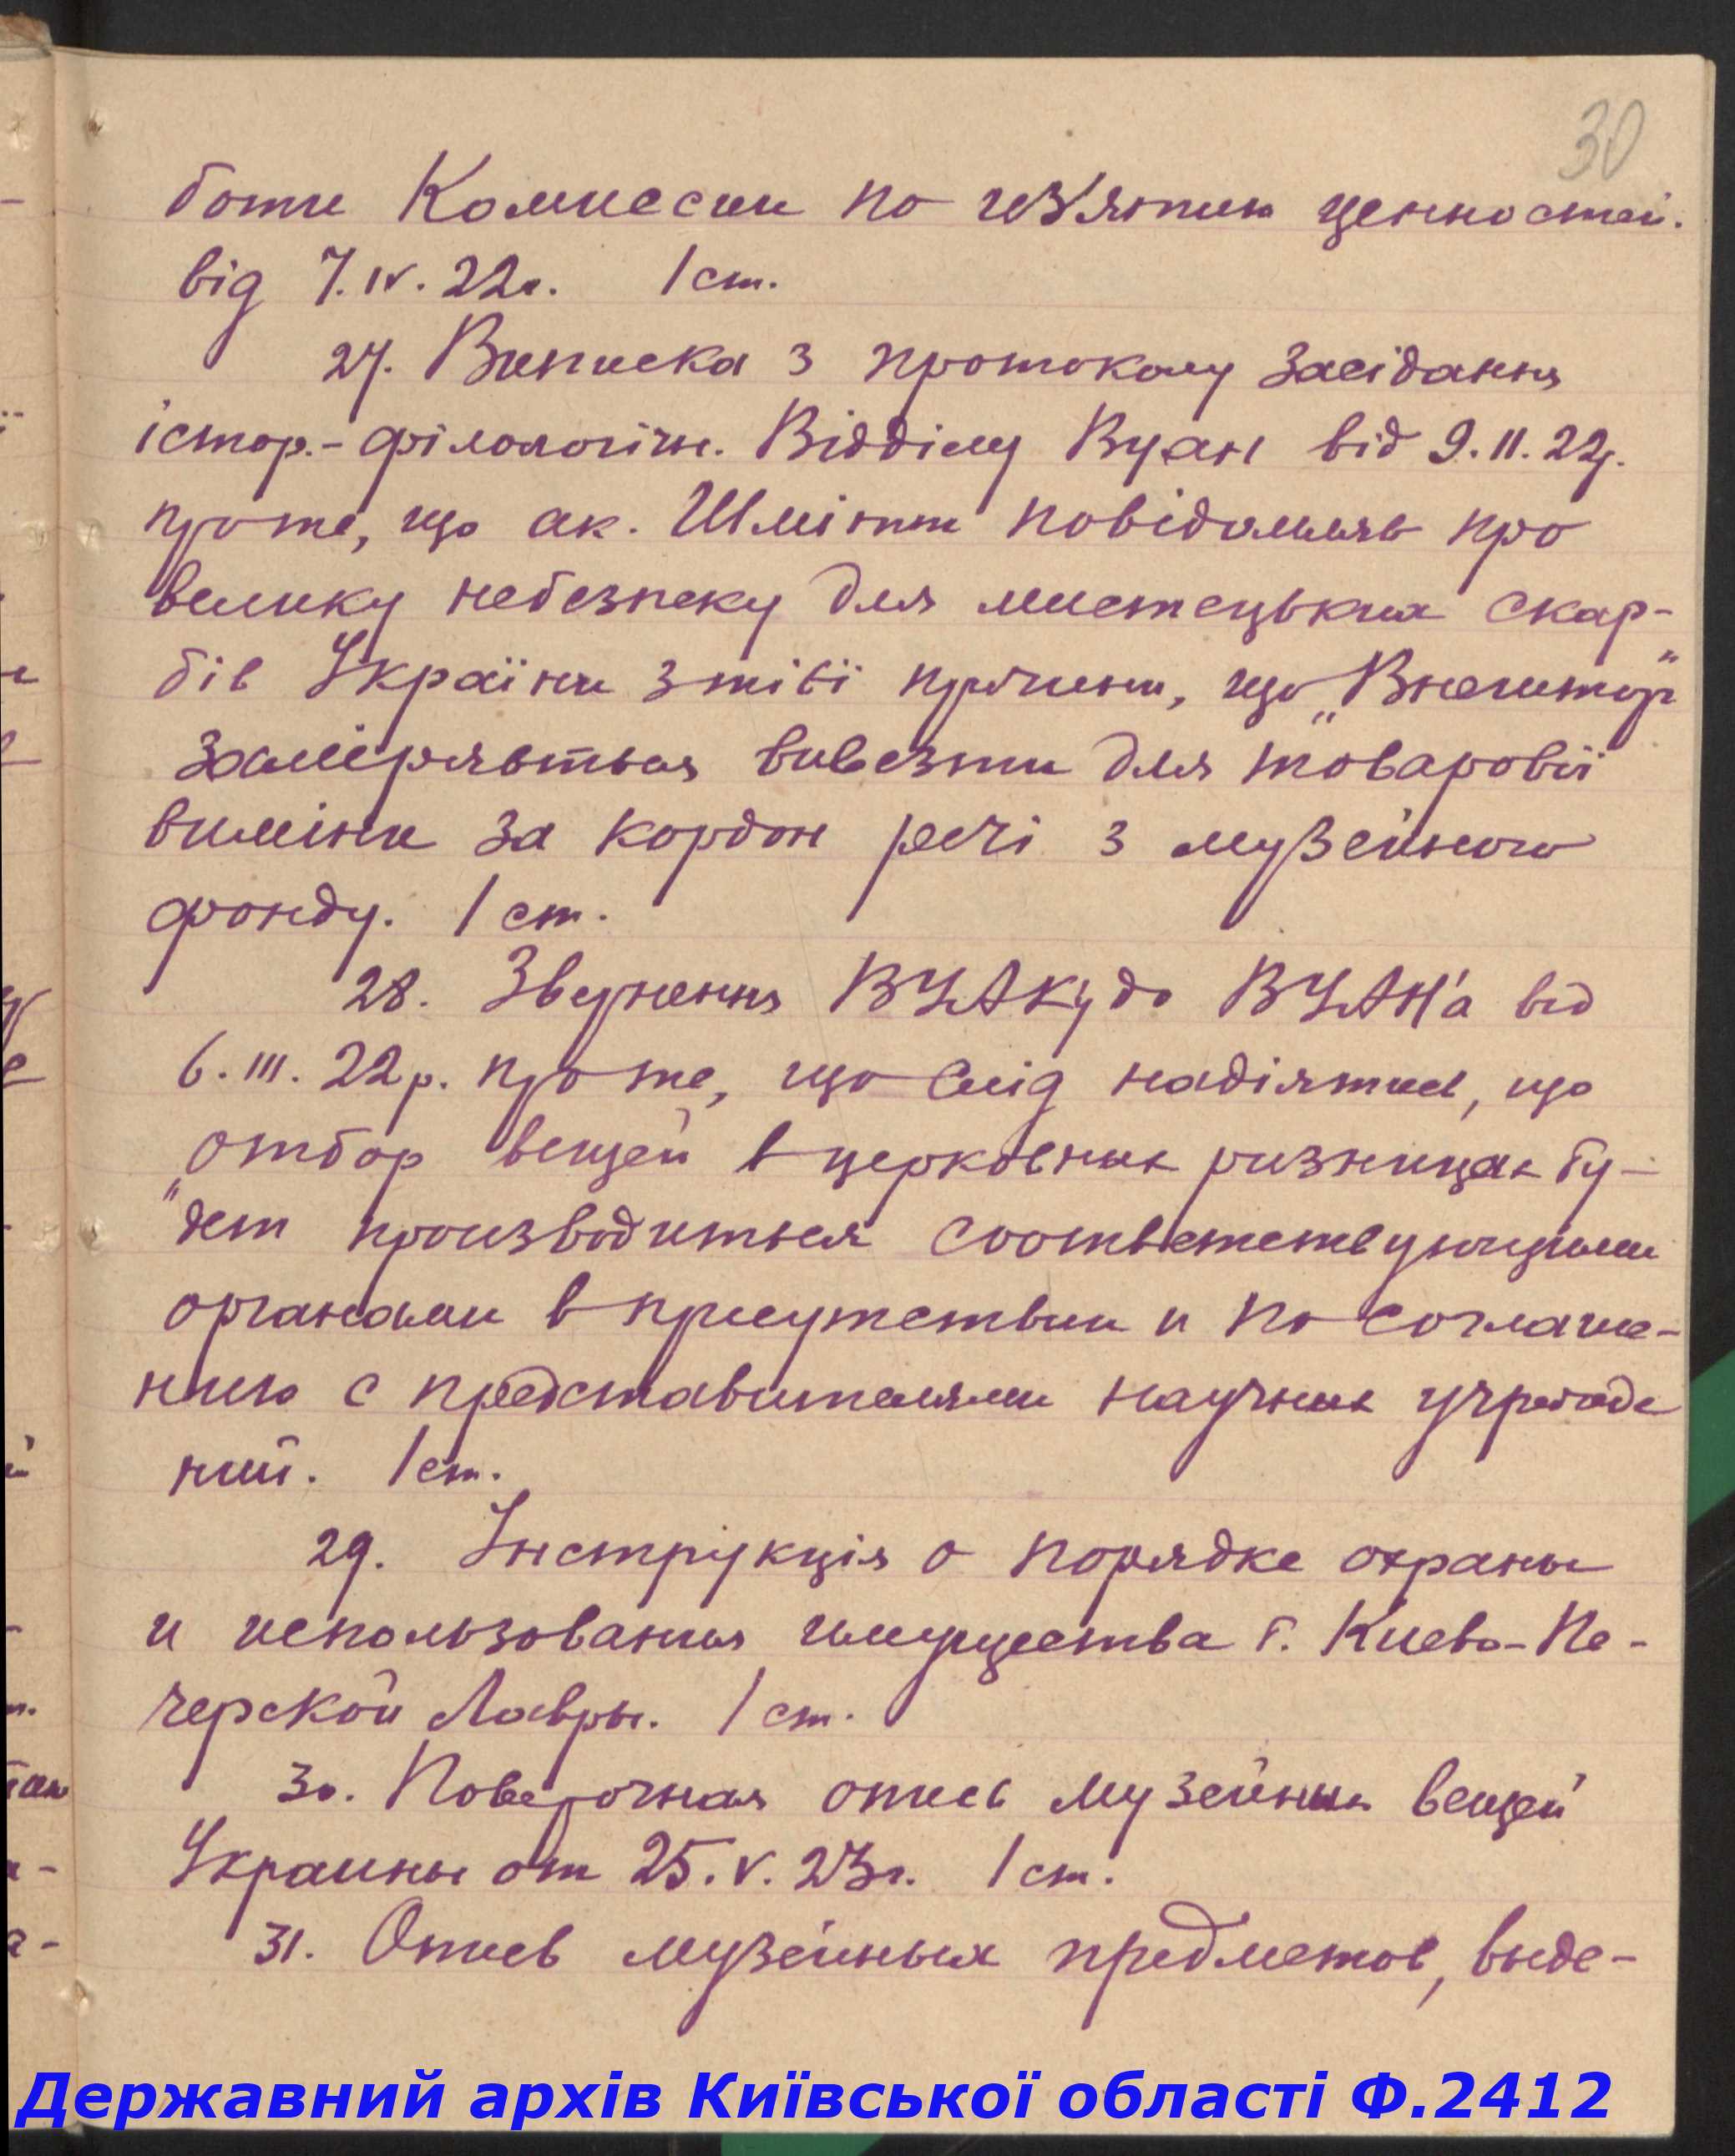 30
боти Комиссии по из'ятию ценностей.
від 7.IV.22г. 1 ст.
27. Виписка з протоколу засідання
істор.-філологічн. Відділу Вуан від 9.II.22р.
про те, що ак. Шмітт повідомляв про
велику небезпеку для мистецьких скар-
бів України з тієї причини, що „Внешторг"
заміряється вивезти для товарової
виміни за кордон речі з музейного
фонду. 1 ст.
28. Звернення ВУАКу до ВУАН'а від
6.III.22р. про те, що слід надіятись, що
„отбор вещей в церковных ризницах бу-
дет производиться соответствующими
органами в присутствии и по соглаше-
нию с представителями научных учрежде
ний. 1 ст.
29. Інструкція о порядке охраны
и использования имущества б. Киево-Пе-
черской Лавры. 1 ст.
30. Поверочная опись музейных вещей
Украины от 25.V.23г. 1 ст.
31. Опись музейных предметов, выде-
Державний архів Київської області Ф.2412